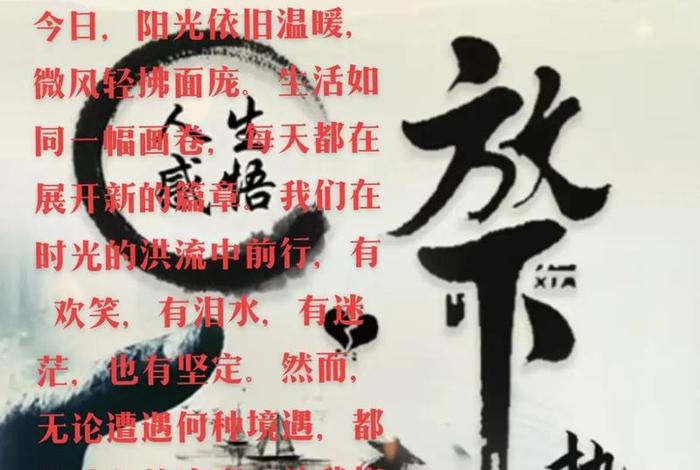 今日，阳光依旧温暖，
微风轻拂面庞。生活如
同一幅画卷，每天都在
展开新的篇章。我们在
时光的洪流中前行，有
欢笑，有泪水，有迷
茫，也有坚定。然而，
无论遭遇何种境遇，都
人生
感悟
放
下
XIA